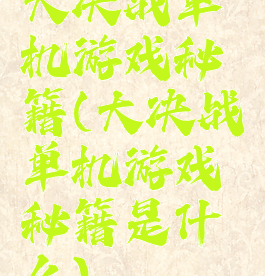 大决战单
机游戏秘
籍(大决战
单机游戏
秘籍是什
么)